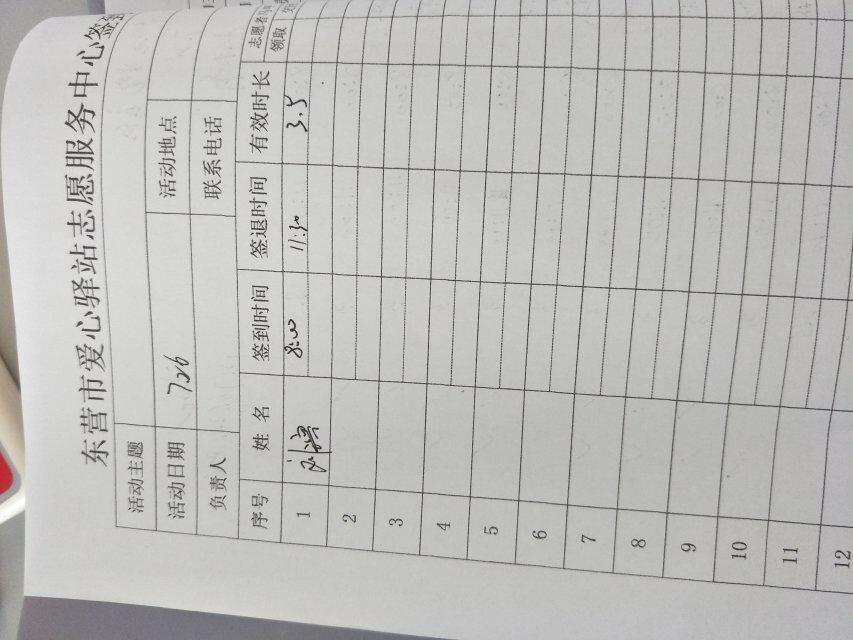 东营市爱心驿站志愿服务中心签到
活动主题
活动日期 7.26 活动地点
负责人 联系电话
序号 姓名 签到时间 签退时间 有效时长 志愿者 领取
1 8:00 11:30 3.5
2
3
4
5
6
7
8
9
10
11
12